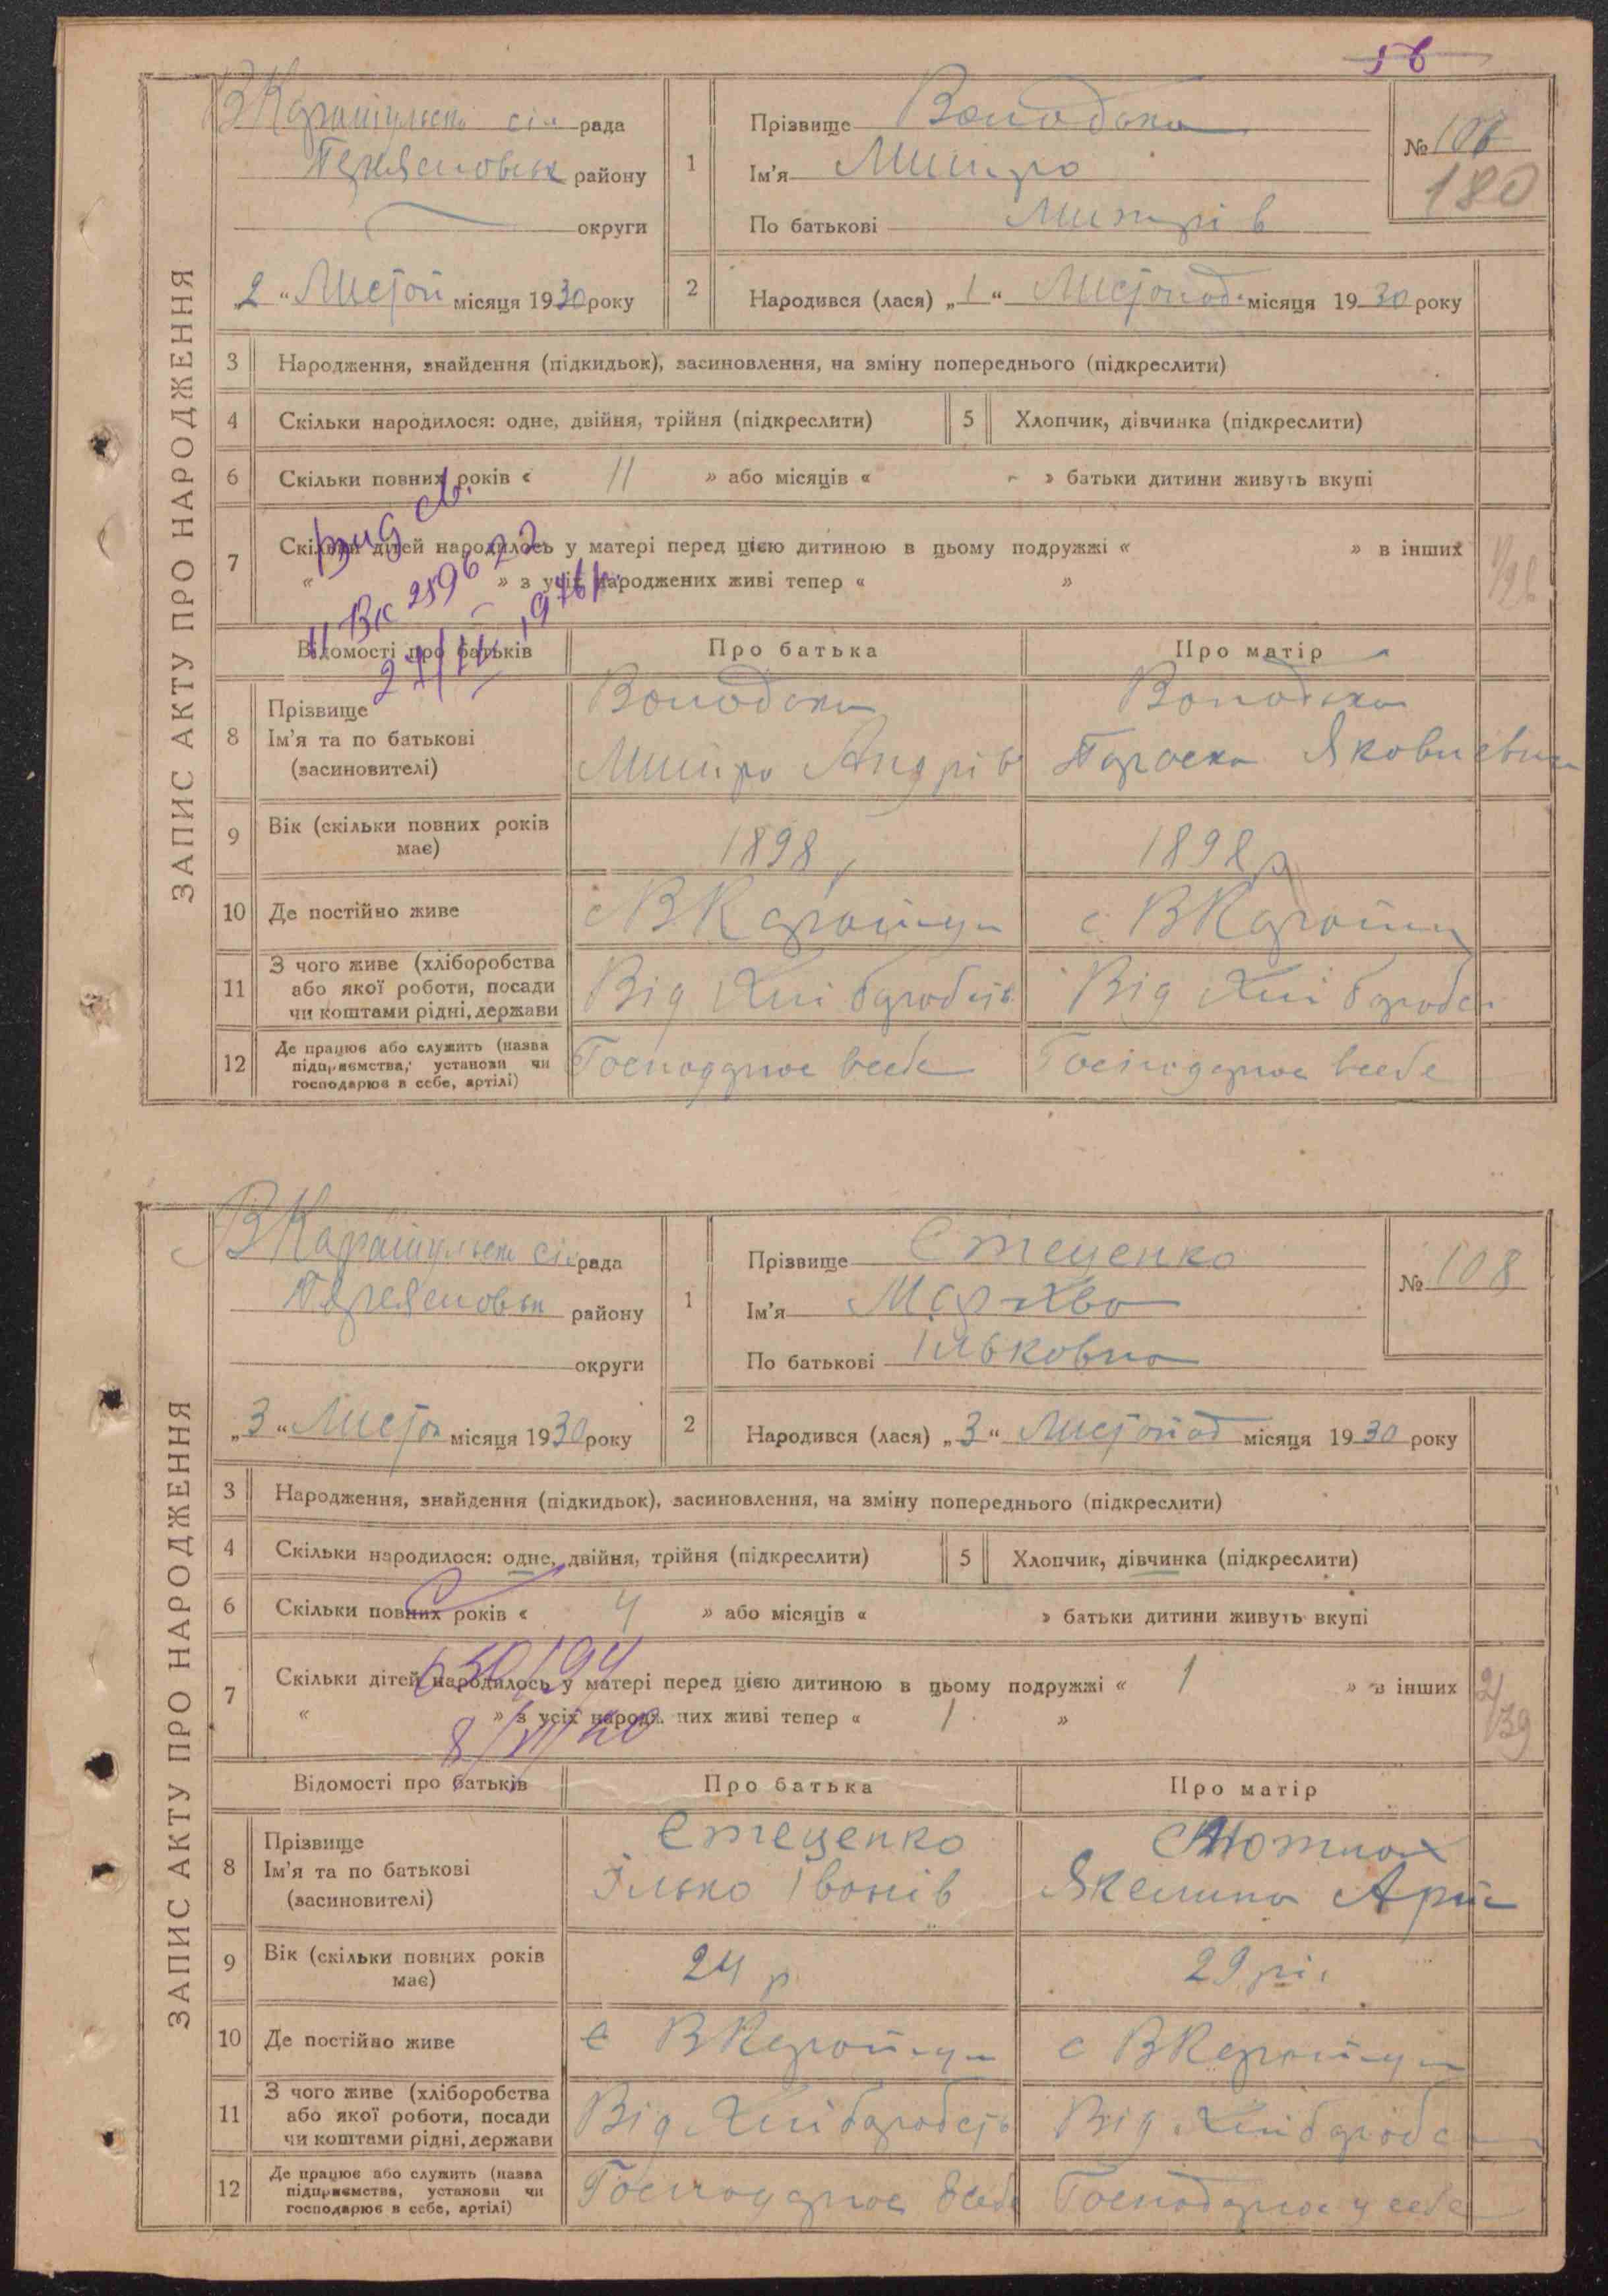 ЗАПИС АКТУ ПРО НАРОДЖЕННЯ
рада
району
округи
„2“ Листоп місяця 1930 року
1
Прізвище
Ім'я Митро
По батькові Митрів
№ 107
180
2
Народився (лася) „1“ Листопад місяця 1930 року
3
Народження, знайдення (підкидьок), засиновлення, на зміну попереднього (підкреслити)
4
Скільки народилося: одне, двійня, трійня (підкреслити)
5
Хлопчик, дівчинка (підкреслити)
6
Скільки повних років « 11 » або місяців « - » батьки дитини живуть вкупі
7
Скільки дітей народилось у матері перед цією дитиною в цьому подружжі « » в інших
« » з усіх народжених живі тепер « »
Відомості про батьків
Про батька
Про матір
8
Прізвище
Ім'я та по батькові
(засиновителі)
Митро Андрів
Параска Яковлевна
9
Вік (скільки повних років має)
1898
1898 р
10
Де постійно живе
с ВКаратул
с ВКаратул
11
З чого живе (хліборобства
або якої роботи, посади
чи коштами рідні, держави
Від Хліборобств
Від Хлібороб
12
Де працює або служить (назва
підприємства, установи чи
господарює в себе, артілі)
Господарює всебе
Господарює всебе
ЗАПИС АКТУ ПРО НАРОДЖЕННЯ
ВКаратульск сіл рада
району
округи
„3“ Листоп місяця 1930 року
1
Прізвище Стеценко
Ім'я Мархва
По батькові Ільковна
№ 108
2
Народився (лася) „3“ Листопад місяця 1930 року
3
Народження, знайдення (підкидьок), засиновлення, на зміну попереднього (підкреслити)
4
Скільки народилося: одне, двійня, трійня (підкреслити)
5
Хлопчик, дівчинка (підкреслити)
6
Скільки повних років « 4 » або місяців « » батьки дитини живуть вкупі
7
Скільки дітей народилось у матері перед цією дитиною в цьому подружжі « 1 » в інших
« » з усіх народж. них живі тепер « 1 »
2/39
Відомості про батьків
Про батька
Про матір
8
Прізвище
Ім'я та по батькові
(засиновителі)
Стеценко
Ілько Іванів
Якелина
9
Вік (скільки повних років має)
24 р
29 рі
10
Де постійно живе
с ВКаратул
с ВКаратул
11
З чого живе (хліборобства
або якої роботи, посади
чи коштами рідні, держави
Від Хліборобств
Від Хлібороб
12
Де працює або служить (назва
підприємства, установи чи
господарює в себе, артілі)
Господарює всебе
Господарює у себе